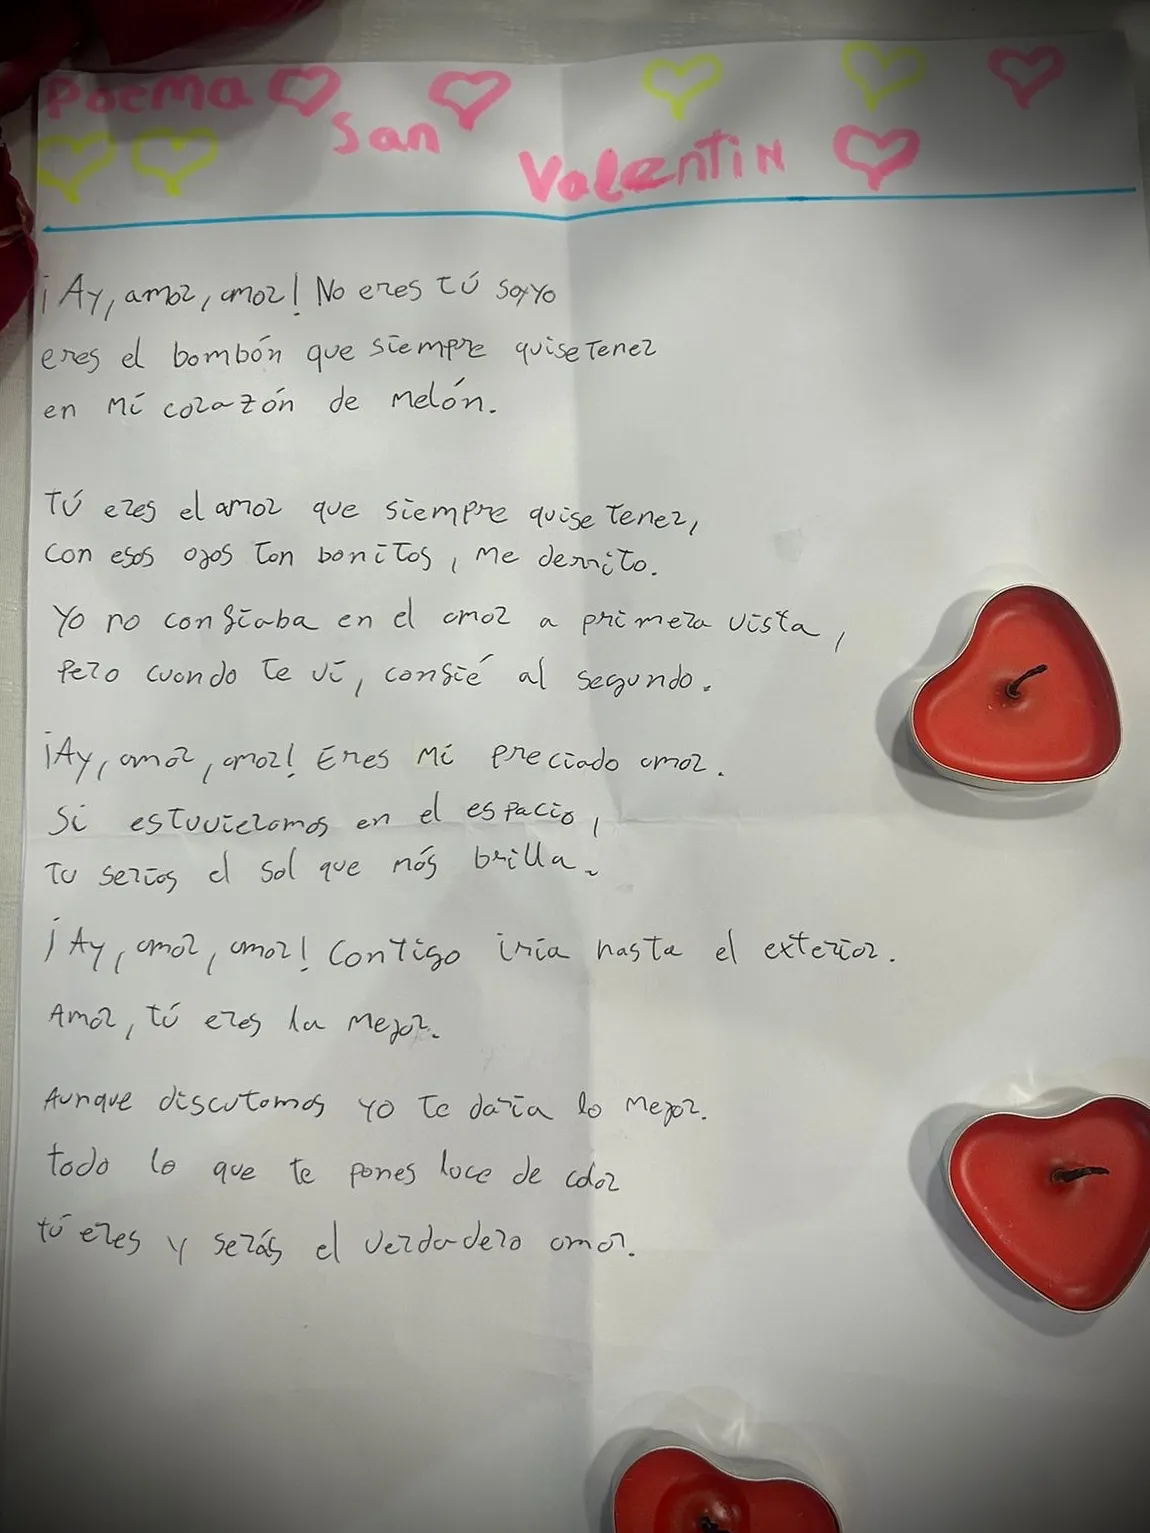 Poema
San
Valentin
¡Ay, amor, amor! No eres tú soy yo
eres el bombón que siempre quise tener
en mí corazón de melón.
Tú eres el amor que siempre quise tener,
con esos ojos tan bonitos, me derrito.
Yo no confiaba en el amor a primera vista,
pero cuando te ví, confié al segundo.
¡Ay, amor, amor! Eres mí preciado amor.
Si estuvieramos en el espacio,
tu serías el sol que más brilla.
¡Ay, amor, amor! Contigo iría hasta el exterior.
Amor, tú eres la mejor.
Aunque discutamos yo te daría lo mejor.
todo lo que te pones luce de color
tú eres y serás el verdadero amor.